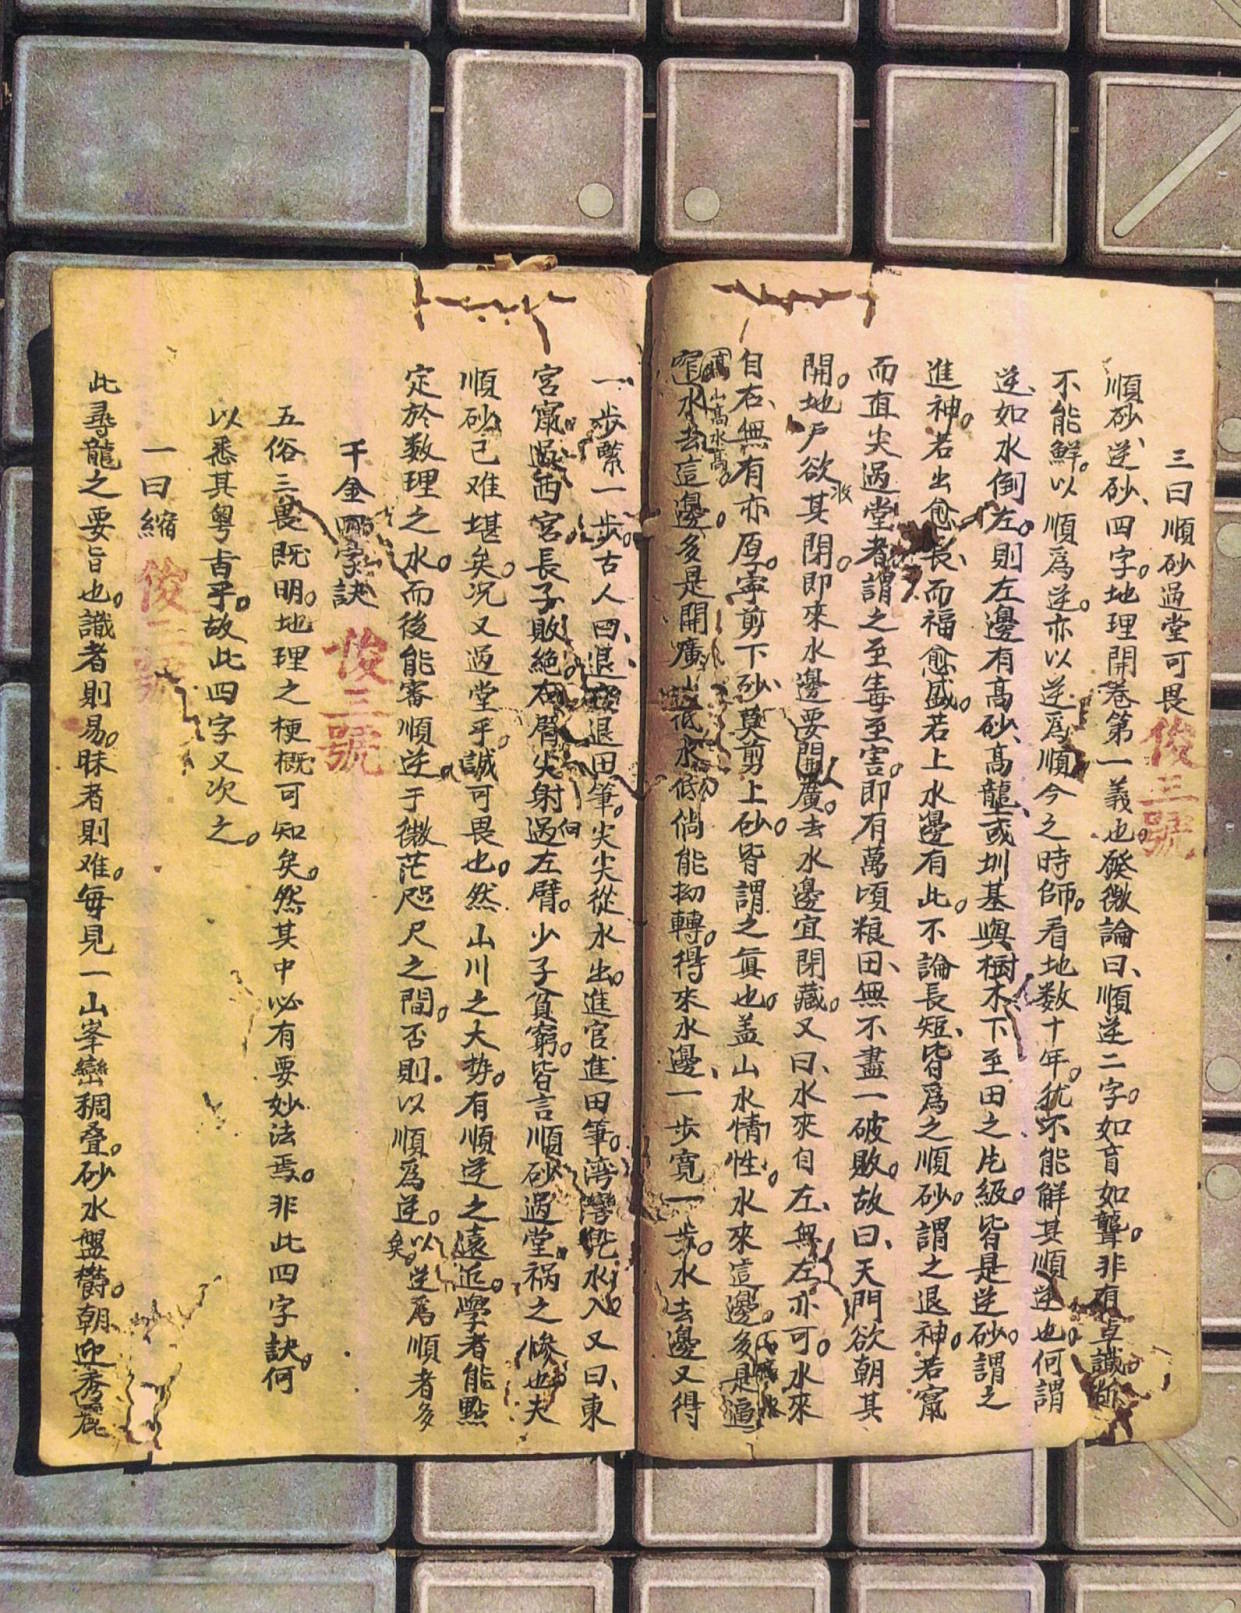 三曰順砂過堂可畏 俊三號
順砂、逆砂、四字。地理開卷第一義也。發微論曰、順逆二字。如盲如聾。非有卓識
不能鮮。以順爲逆。亦以逆爲順今之時師。看地数十年。犹不能解其順逆也。何謂
逆、如水倒左。則左邊有高砂、高龍、或圳基與樹木、下至田之片級。皆是逆砂。謂之
進神。若出愈長、而福愈盛。若上水邊有此。不論長短、皆爲之順砂。謂之退神。若竄
而直尖過堂者、謂之至毒至害。即有萬頃粮田、無不盡一破敗。故曰、天門欲朝其
開。地戶欲其閉。即來水邊要開廣。去水邊宜閉藏。又曰、水來自左、無左亦可。水來
自右、無有亦厚。寧剪下砂、莫剪上砂。皆謂之眞也。盖山水情性。水來這邊。多是逼
山高水高。
窄水去這邊。多是開廣山低水低倘能拗轉。得來水邊、一步寬一步。水去邊又得
一步緊一步。古人曰、退田筆。尖尖從水出。進官進田筆。湾灣兜水入。又曰、東
宮竄過西宮。長子敗絶右臂尖射過左臂。少子貧窮。皆言順砂過堂。禍之惨也夫
順砂己难堪矣。况又過堂乎。誠可畏也。然山川之大势。有順逆之遠近。學者能點
定於数理之水。而後能審順逆于微茫咫尺之間。否則。以順爲逆。以逆爲順者多
矣。
千金四字訣 俊三號
五俗三畏既明。地理之梗概可知矣。然其中必有要妙法焉。非此四字訣。何
以悉其粵旨乎。故此四字又次之。
一曰縮 俊三號
此尋龍之要旨也。識者則易。昧者則难。每見一山峯巒稠叠。砂水盤欝。朝迎秀麗